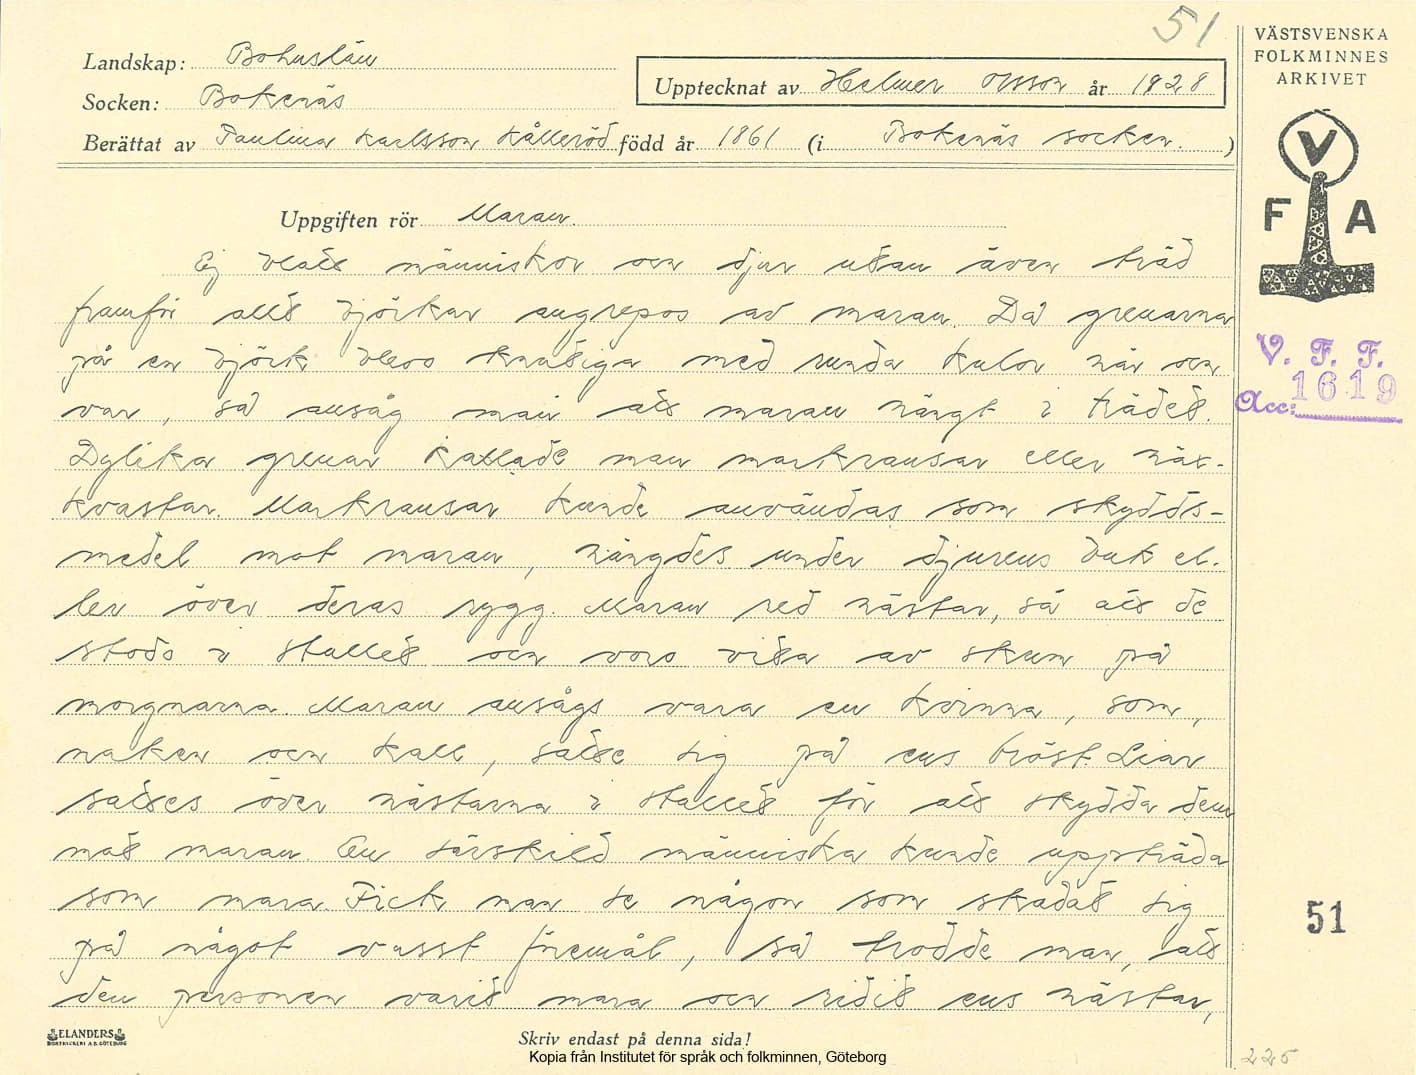 51
VÄSTSVENSKA
FOLKMINNES
ARKIVET
Landskap: Bohuslän
Socken: Bokenäs
Upptecknat av Helmer Olsson år 1928
Berättat av Paulina Karlsson Kålleröd född år 1861 (i Bokenäs socken.)
V
F A
Uppgiften rör Maran.
Ej blott människor och djur utan även träd
framför allt björkar angrepos av maran. Då grenarna
på en björk blevo knutiga med runda kulor här och
var, så ansåg man att maran hängt i trädet.
Dylika grenar kallade man markransar eller häx-
kvastar. Markransar kunde användas som skydds-
medel mot maran, hängdes under djurens buk el-
ler över deras rygg. Maran red hästar, så att de
stodo i stallet och voro vita av skum på
morgnarna. Maran ansågs vara en kvinna, som,
naken och kall, satte sig på ens bröst. Liar
sattes över hästarna i stallet för att skydda dem
mot maran. En särskild människa kunde uppträda
som mara. Fick man se någon som skadat sig
på något vasst föremål, så trodde man, att
den personen varit mara och ridit ens hästar,
V. F. F.
Acc: 1619
51
ELANDERS
BOKTRYCKERI A.B. GÖTEBORG
Skriv endast på denna sida!
Kopia från Institutet för språk och folkminnen, Göteborg